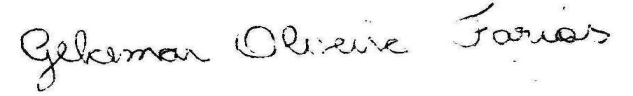 Gelcemar Oliveira Farias